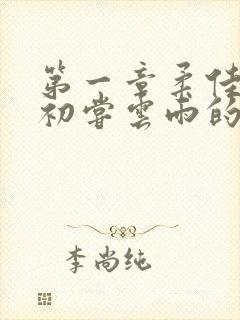 第一章柔佳
初尝雲雨的
李尚纯